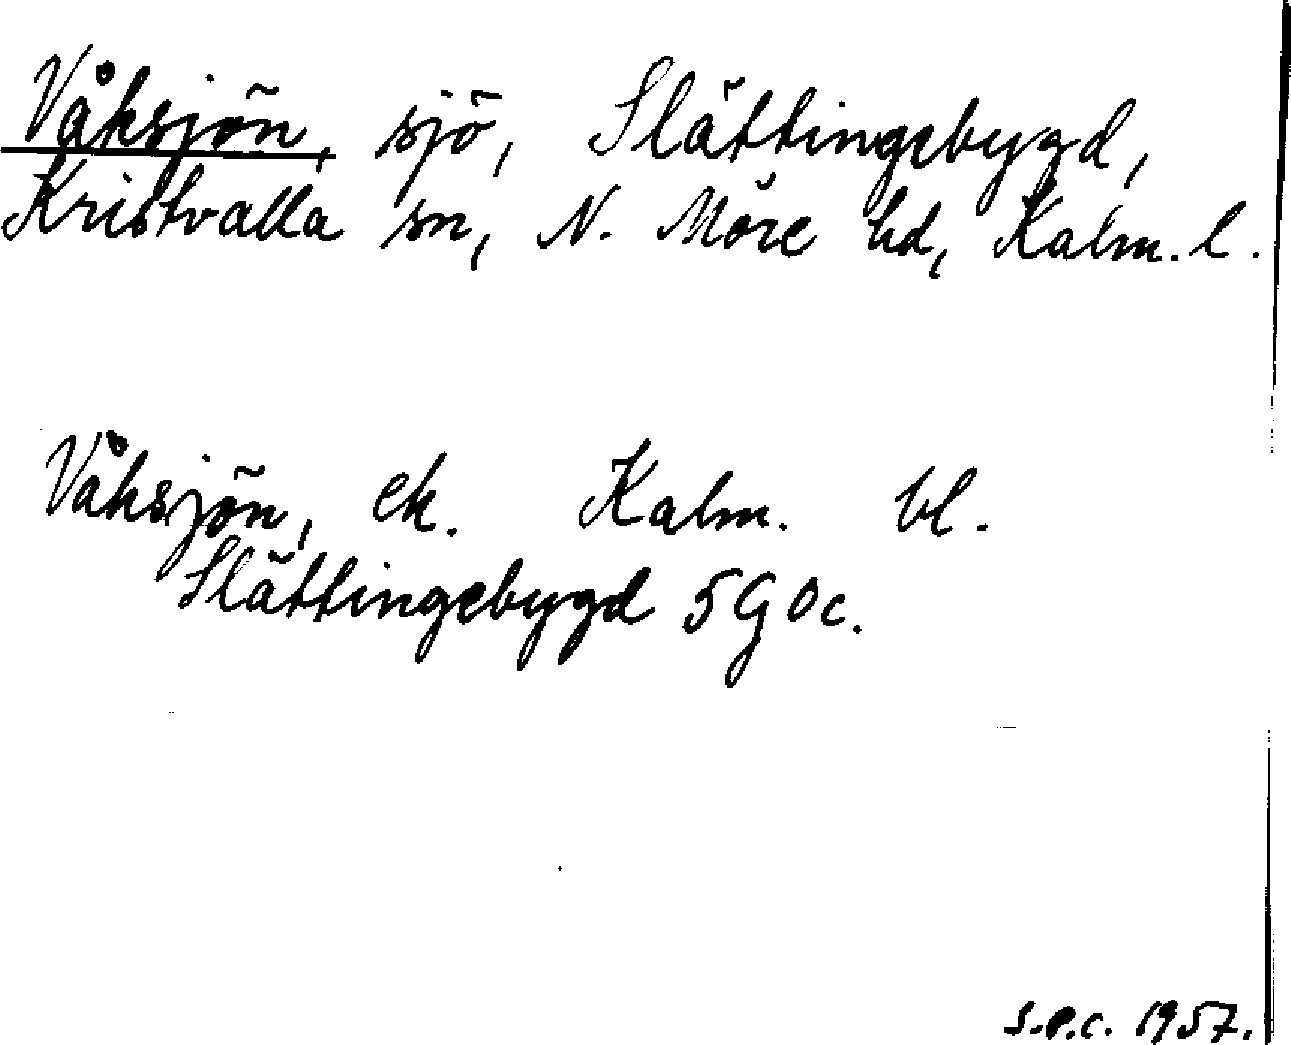 Våksjön, sjö, Slättingebygd,
Kristvalla sn, N. Möre hd, Kalm. l.
Våksjön, ek. Kalm. bl.
Slättingebygd 5G0c.
S.P.C. 1957.